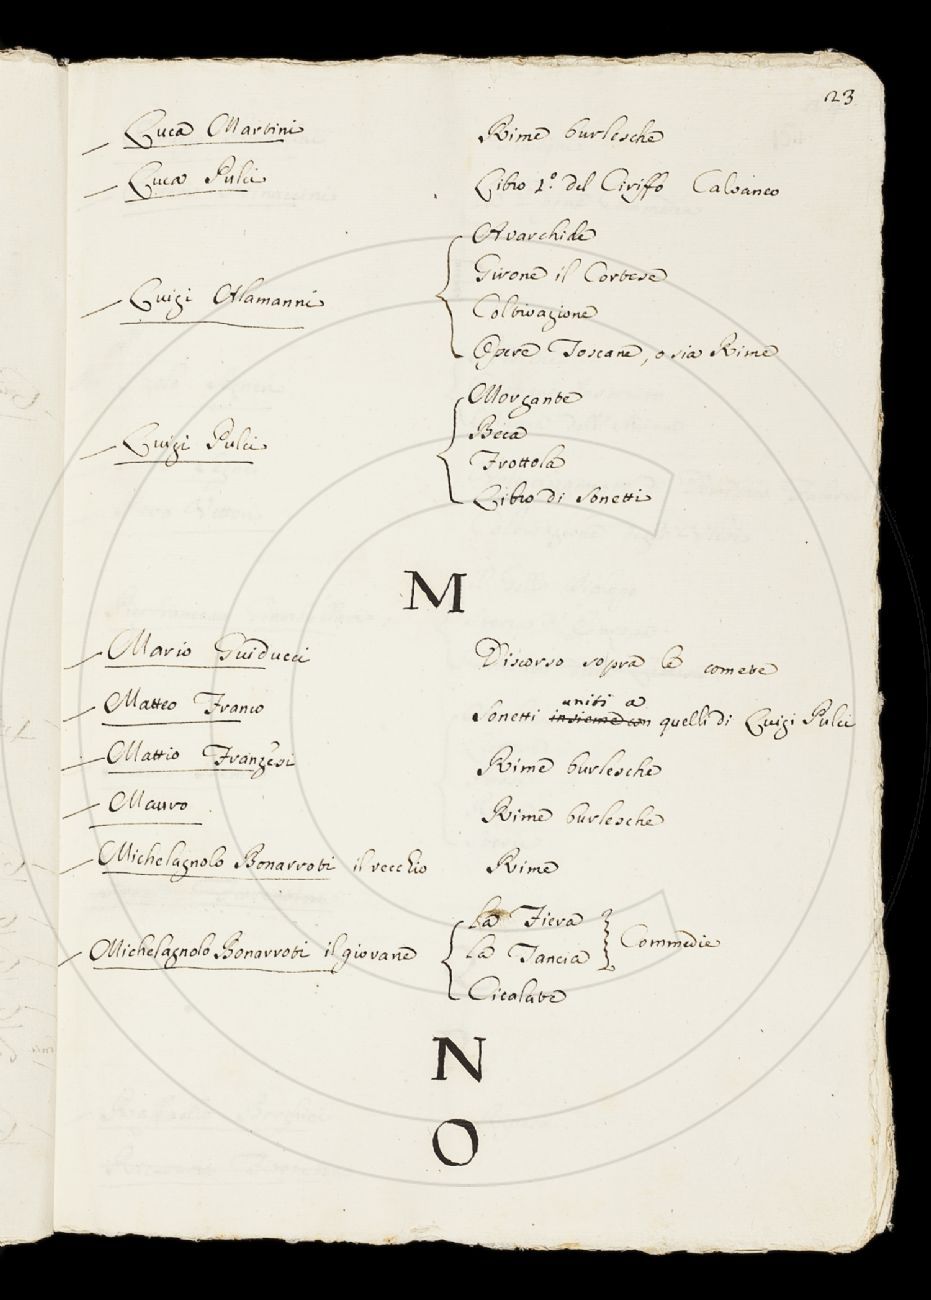 23
Luca Martini Rime burlesche
Luca Pulci Libro 1.º del Ciriffo Calvaneo
Avarchide
Girone il Cortese
Luigi Alamanni Coltivazione
Opere Toscane, o sia Rime
Morgante
Luigi Pulci Beca
Frottola
Libro di Sonetti
M
Mario Guiducci Discorso sopra le comete
uniti a
Matteo Franco Sonetti insieme con quelli di Luigi Pulci
Mattio Franzesi Rime burlesche
Mauro Rime burlesche
Michelagnolo Bonarroti il vecchio Rime
La Fiera
Michelagnolo Bonarroti il giovane La Tancia Commedie
Cicalate
N
O